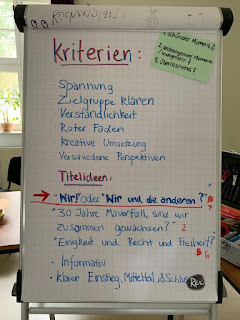 Kriterien:
1. schönster Moment?
3. Überraschend?
Spannung
Zielgruppe klären
Verständlichkeit
Roter Faden
Kreative Umsetzung
Verschiedene Perspektiven
Titelideen:
"Wir!" oder "Wir und die anderen?" 8
"30 Jahre Mauerfall, sind wir
zusammen gewachsen?" 2
"Einigkeit und Recht und Freiheit?"
6
Informativ
Klarer Einstieg, Mittelteil & Schluss